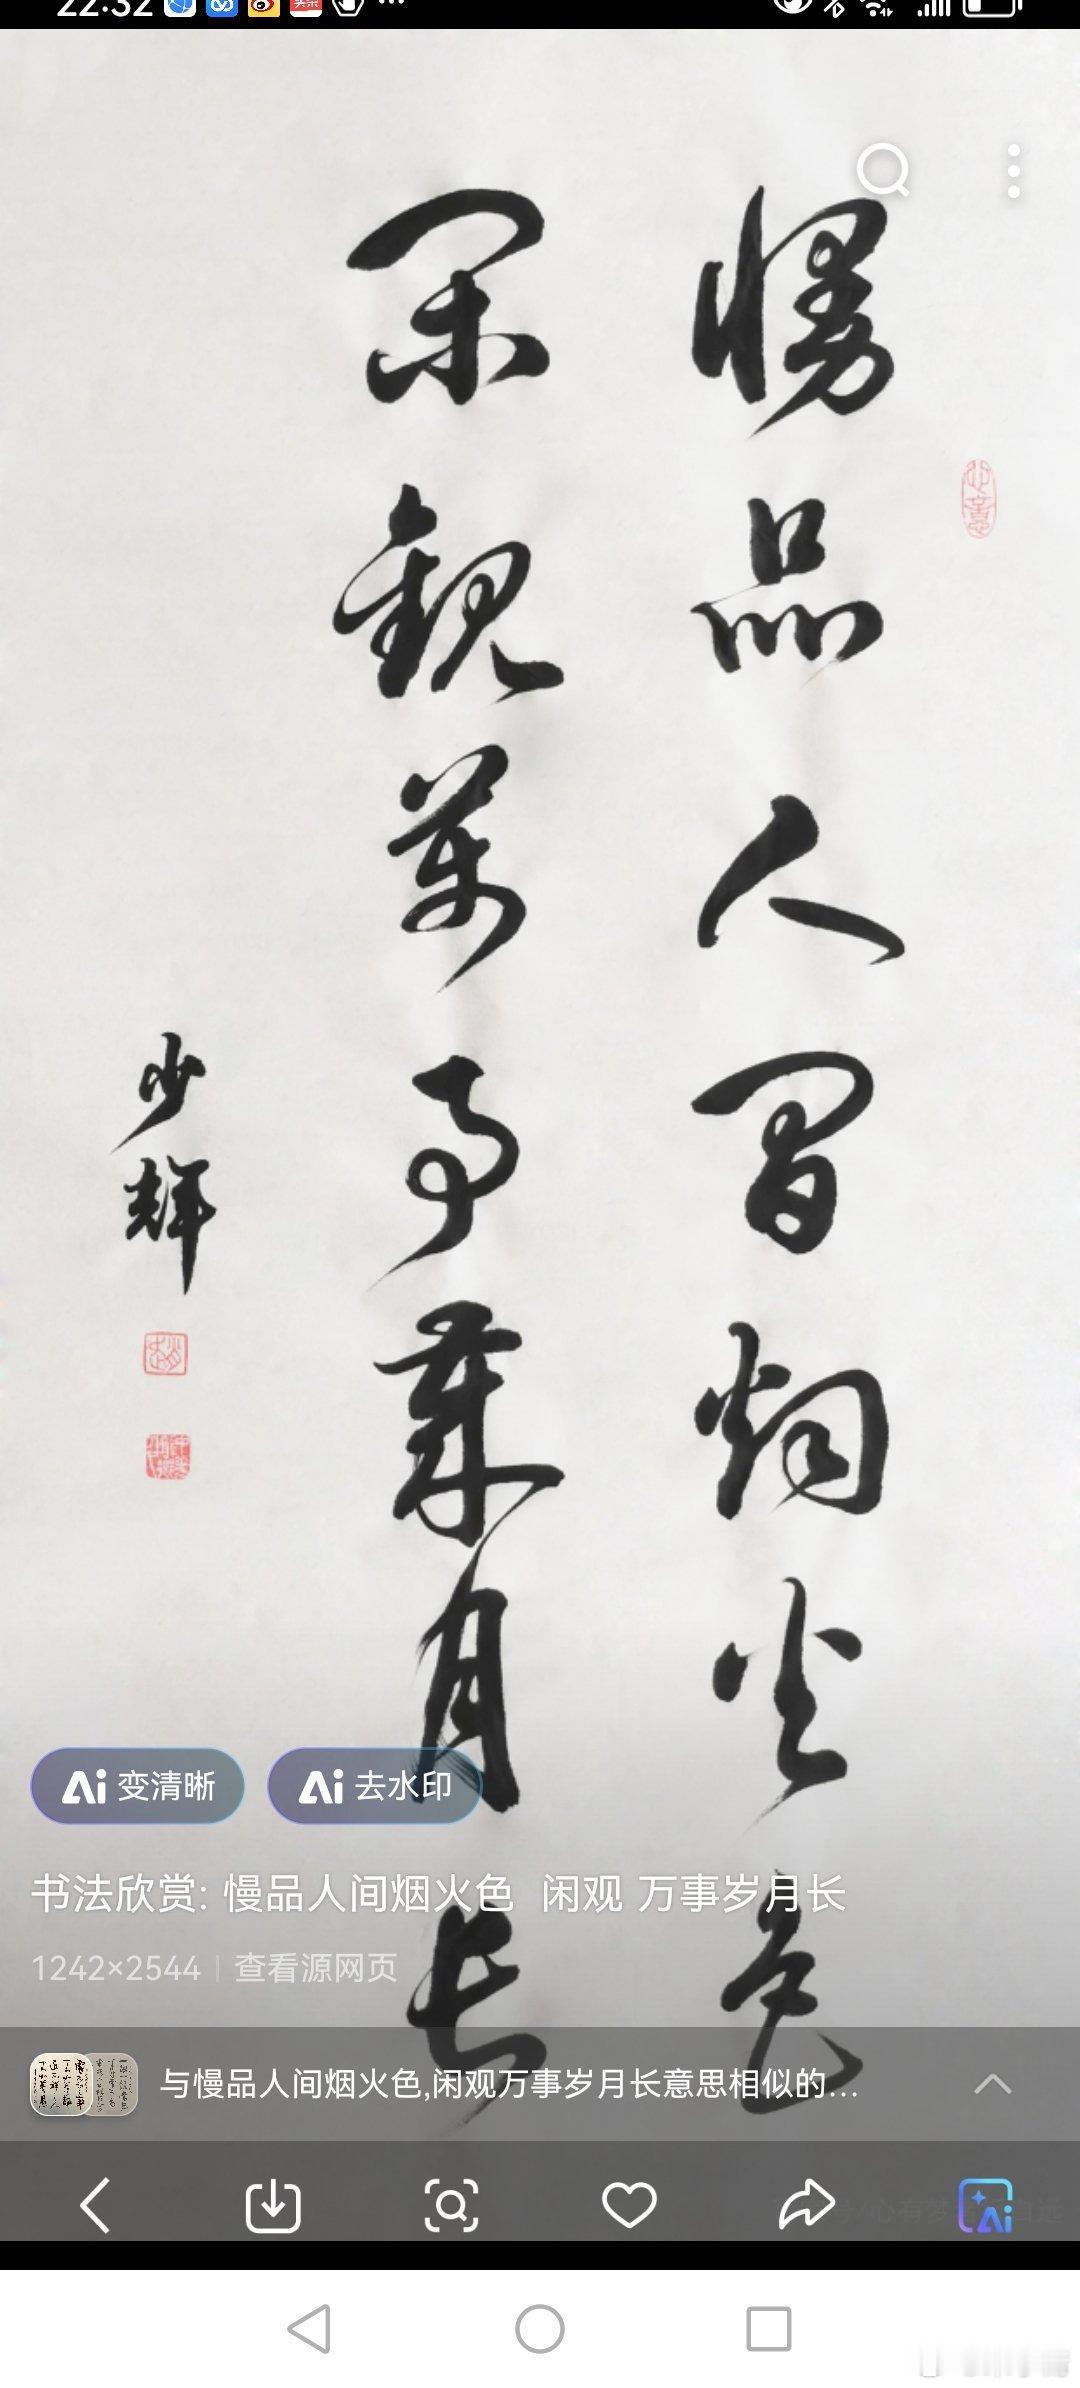 22:32
慢品人间烟火色
闲观万事岁月长
少辉
Ai 变清晰
Ai 去水印
书法欣赏: 慢品人间烟火色 闲观 万事岁月长
1242×2544 | 查看源网页
与慢品人间烟火色,闲观万事岁月长意思相似的...
Ai